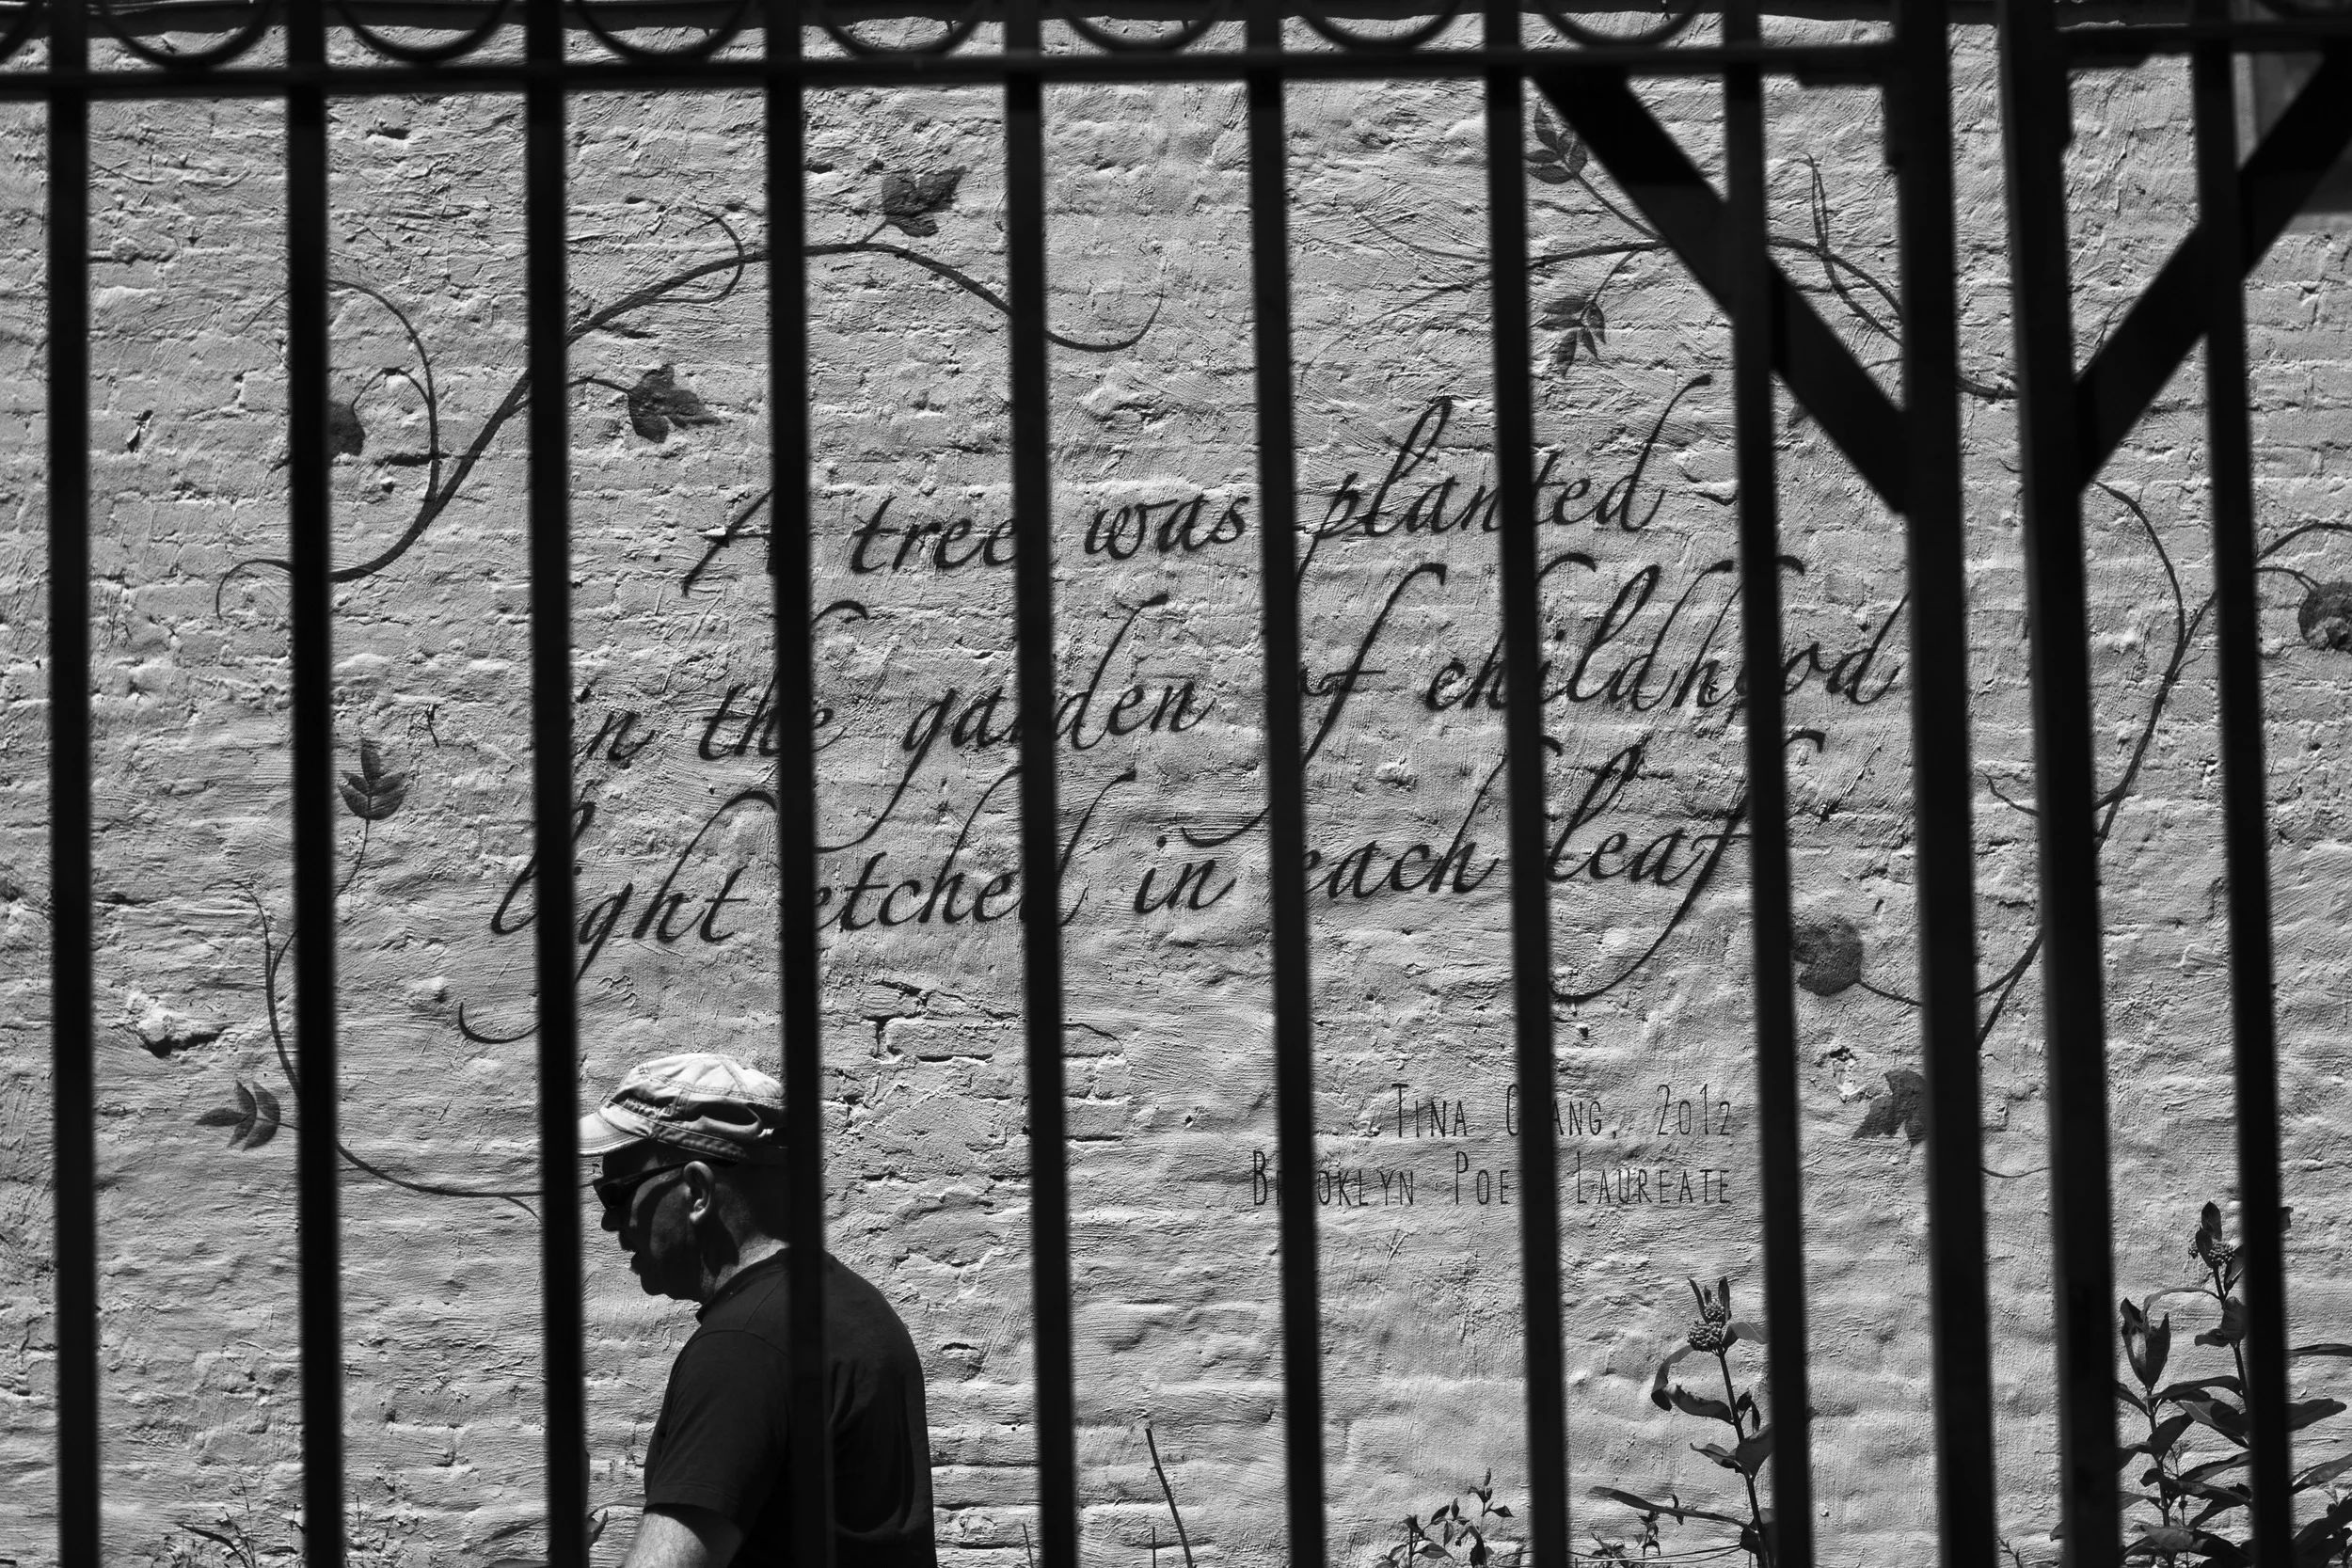 A tree was planted -
in the garden of childhood
light etched in each leaf
TINA CHANG, 2012
BROOKLYN POET LAUREATE